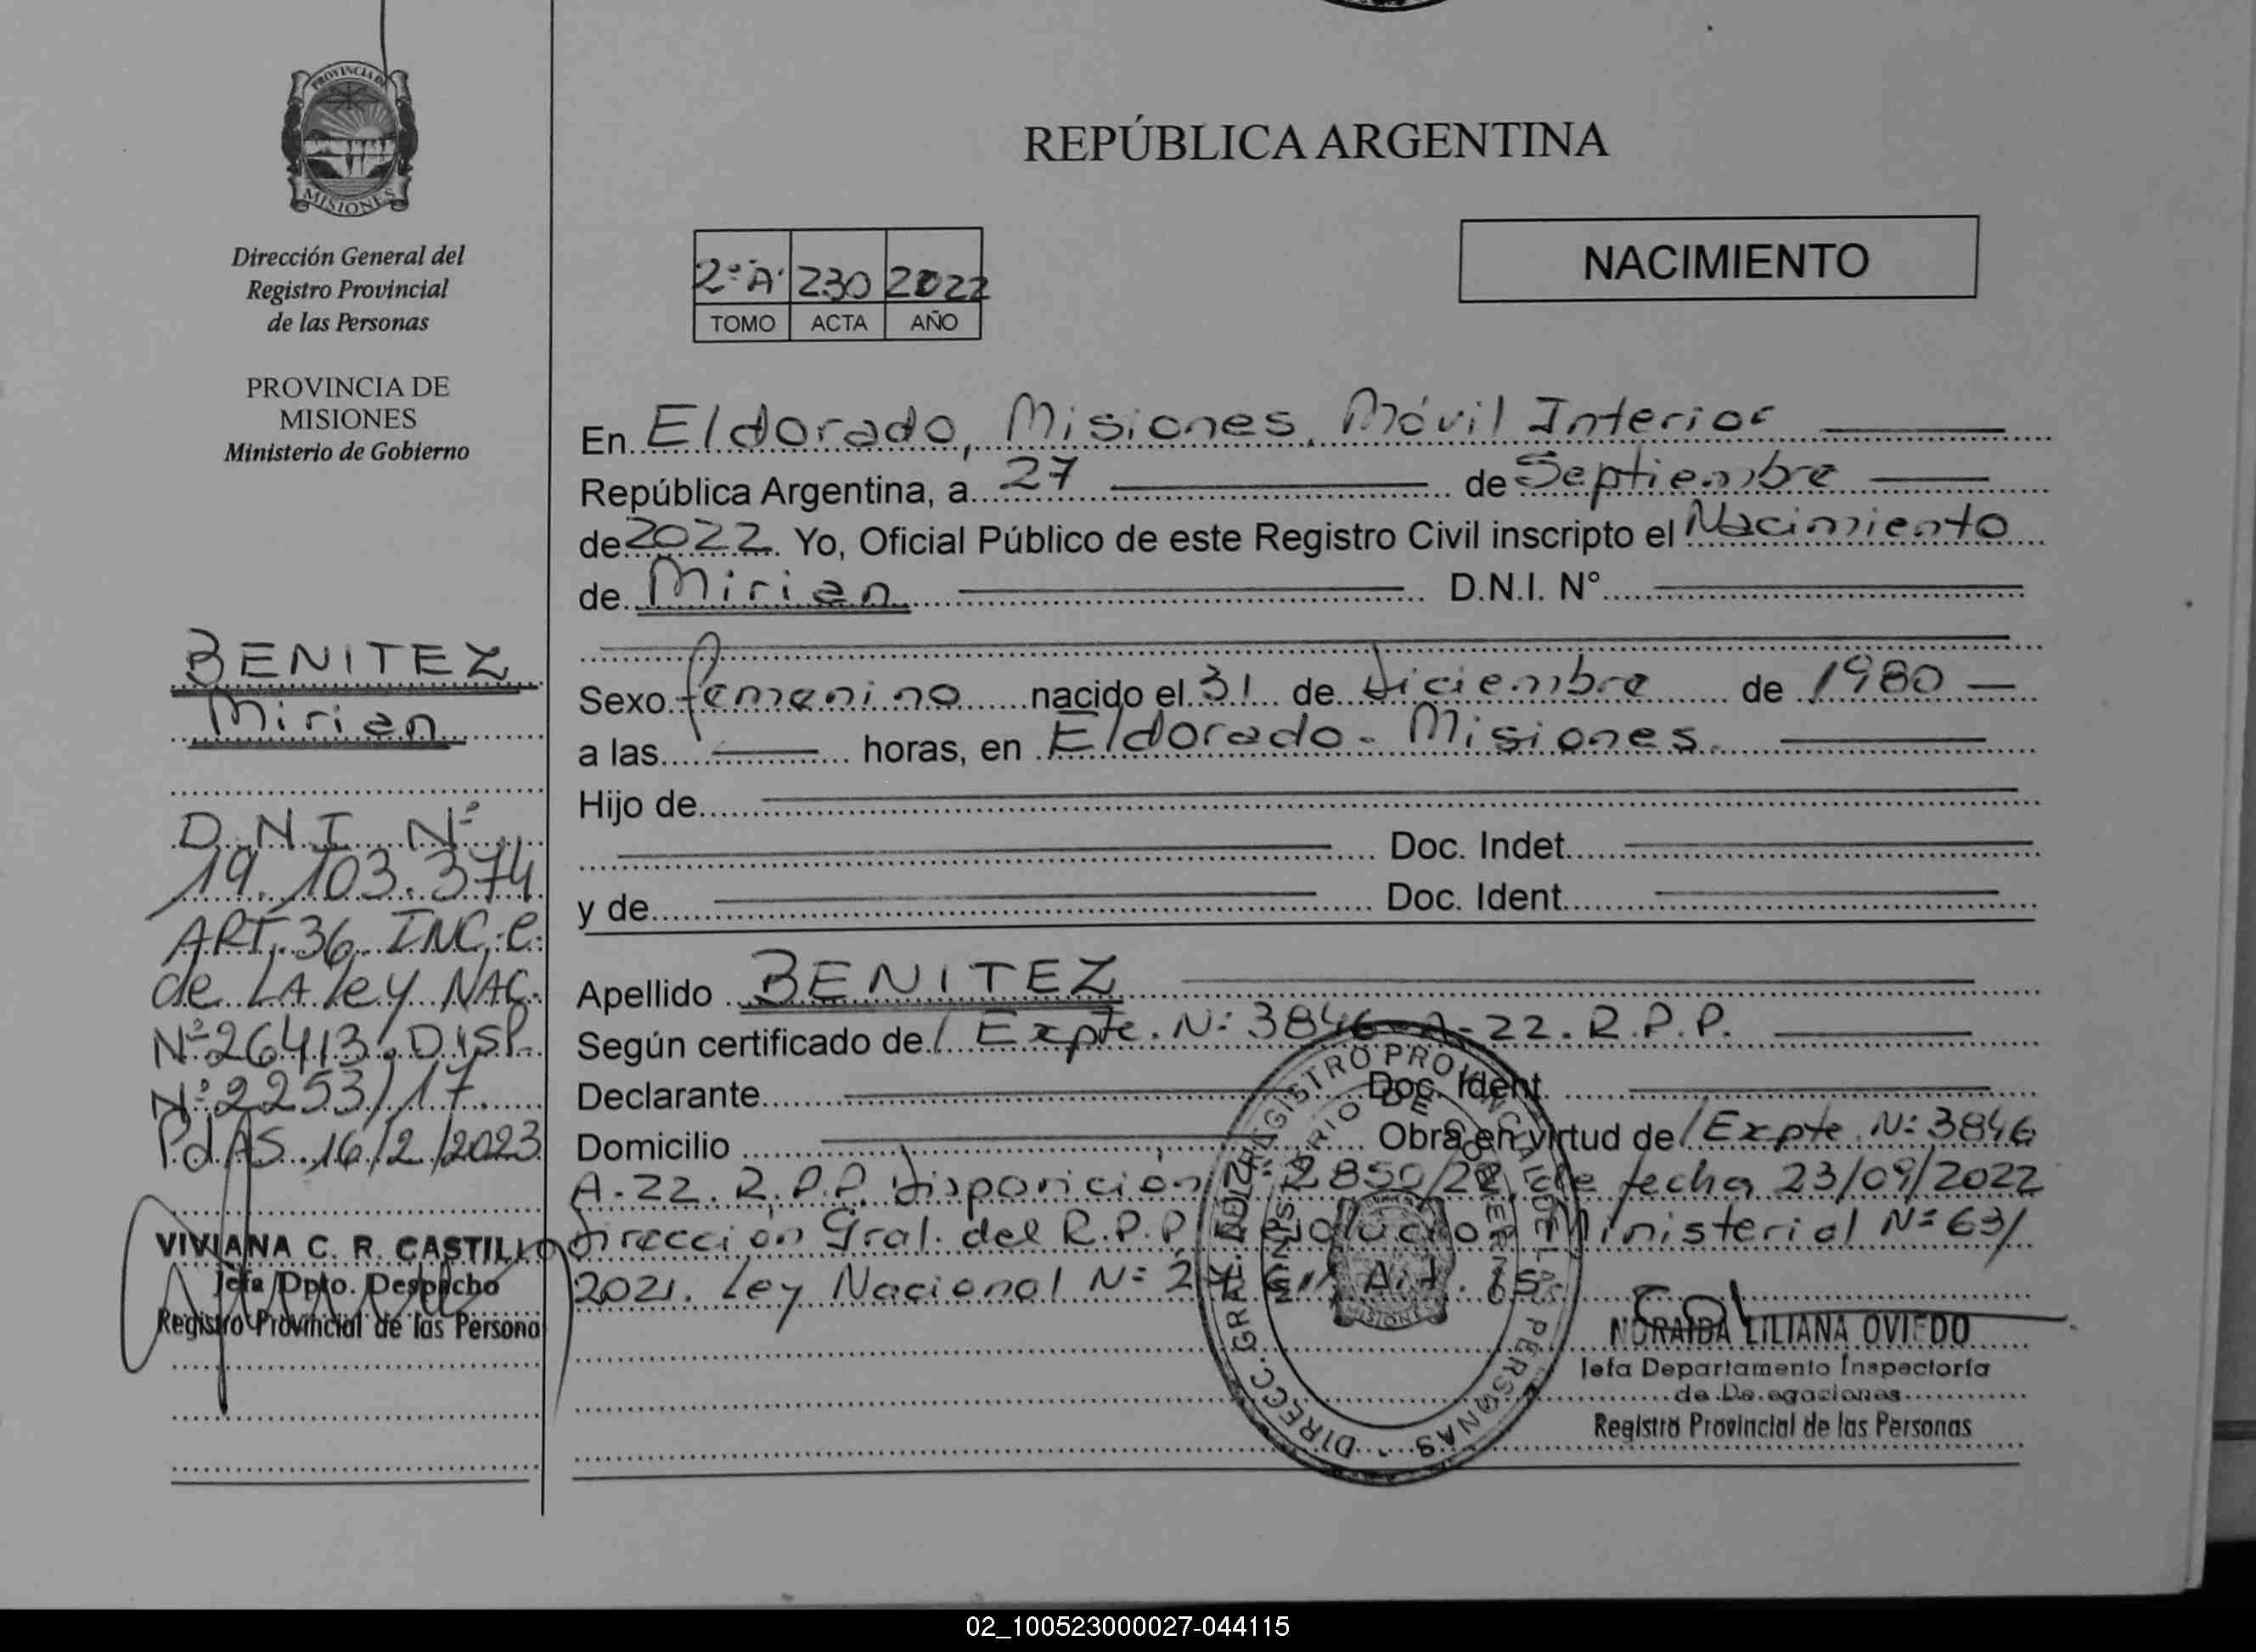 PROVINCIA DE
MISIONES
Dirección General del
Registro Provincial
de las Personas
PROVINCIA DE
MISIONES
Ministerio de Gobierno
BENITEZ
Mirian
D.N.I. Nº
19.103.374
ART. 36 INC. C.
de LA ley NAC.
Nº 26413. DISP.
Nº 2253/17
PdAS 16/2/2023
VIVIANA C. R. CASTILLO
Jefa Dpto. Despacho
Registro Provincial de las Persona
REPÚBLICA ARGENTINA
NACIMIENTO
2º"A" 230 2022
TOMO ACTA AÑO
En Eldorado, Misiones, Móvil Interior
República Argentina, a 27 de Septiembre
de 2022. Yo, Oficial Público de este Registro Civil inscripto el Nacimiento
de Mirian D.N.I. N°
Sexo femenino nacido el 31 de diciembre de 1980
a las horas, en Eldorado - Misiones.
Hijo de
Doc. Indet.
y de Doc. Ident.
Apellido BENITEZ
Según certificado de/ Expte. Nº 3846-A-22. R.P.P.
Declarante Doc. Ident.
Domicilio Obra en virtud de/ Expte. Nº 3846
A-22. R.P.P. disposición Nº 2850/22, de fecha 23/09/2022
Dirección Gral. del R.P.P. Ministerial Nº 63/
2021. Ley Nacional Nº Art.
DIRECC. GRAL. DEL REGISTRO PROVINCIAL DE LAS PERSONAS
MINISTERIO DE GOBIERNO
MISIONES
NORAIDA LILIANA OVIEDO
Jefa Departamento Inspectoría
de Delegaciones
Registro Provincial de las Personas
02_100523000027-044115